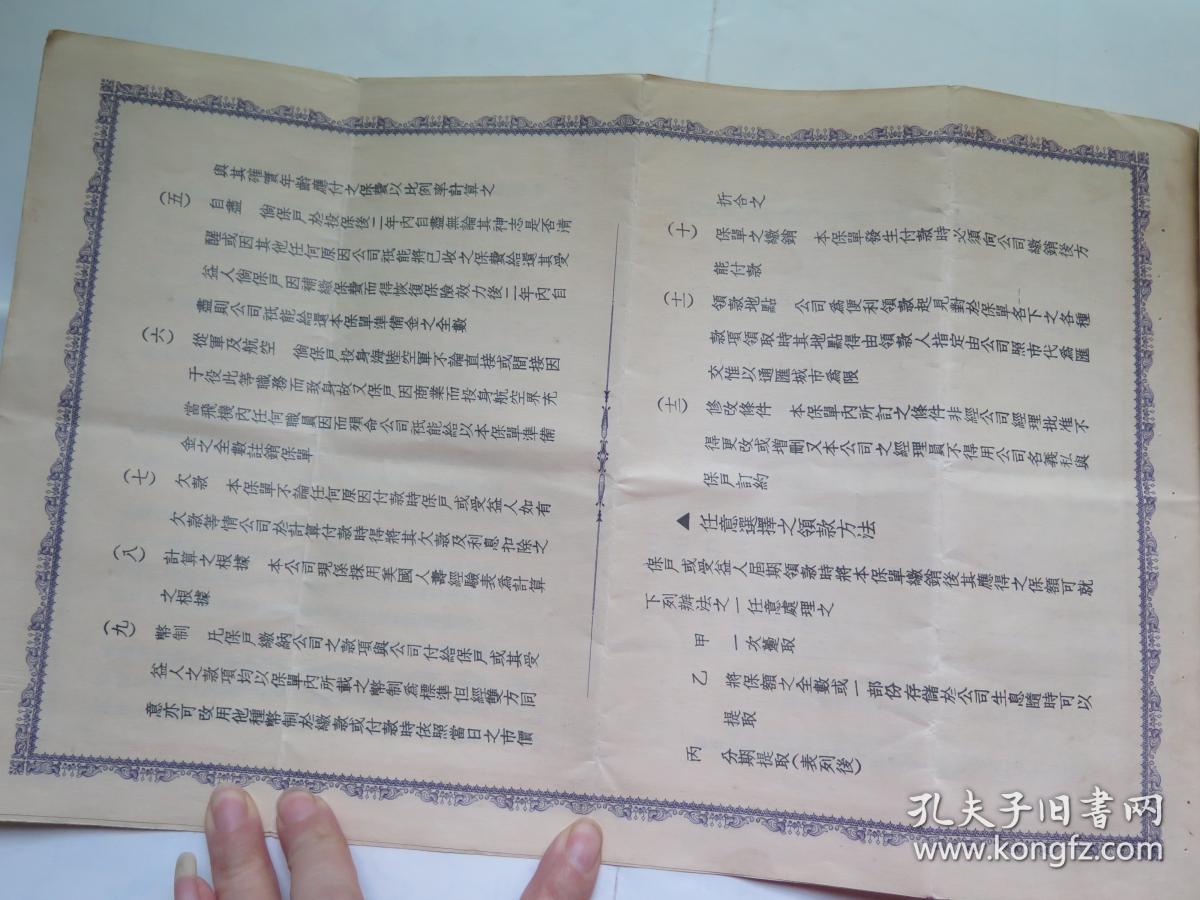 與其確實年齡應付之保費以比例率計算之
(五) 自盡 倘保戶於投保後二年內自盡無論其神志是否清
醒或因其他任何原因公司祇能將已收之保費給還其受
益人倘保戶因補繳保費而得恢復保險效力後二年內自
盡則公司祇能給還本保單準備金之全數
(六) 從軍及航空 倘保戶投身海陸空軍不論直接或間接因
于役此等職務而致身故又保戶因商業而投身航空界充
當飛機內任何職員因而殞命公司祇能給以本保單準備
金之全數註銷保單
(七) 欠款 本保單不論任何原因付款時保戶或受益人如有
欠款等情公司於計算付款時得將其欠款及利息扣除之
(八) 計算之根據 本公司現係採用美國人壽經驗表為計算
之根據
(九) 幣制 凡保戶繳納公司之款項與公司付給保戶或其受
益人之款項均以保單內所載之幣制為標準但經雙方同
意亦可改用他種幣制於繳款或付款時依照當日之市價
折合之
(十) 保單之繳銷 本保單發生付款時必須向公司繳銷後方
能付款
(十一) 領款地點 公司為便利領款起見對於保單名下之各種
款項領取時其地點得由領款人指定由公司照市代為匯
交惟以通匯城市為限
(十二) 修改條件 本保單內所訂之條件非經公司經理批准不
得更改或增刪又本公司之經理員不得用公司名義私與
保戶訂約
▲任意選擇之領款方法
保戶或受益人屆期領款時將本保單繳銷後其應得之保額可就
下列辦法之一任意處理之
甲 一次躉取
乙 將保額之全數或一部份存儲於公司生息隨時可以
提取
丙 分期提取(表列後)
孔夫子旧书网
www.kongfz.com